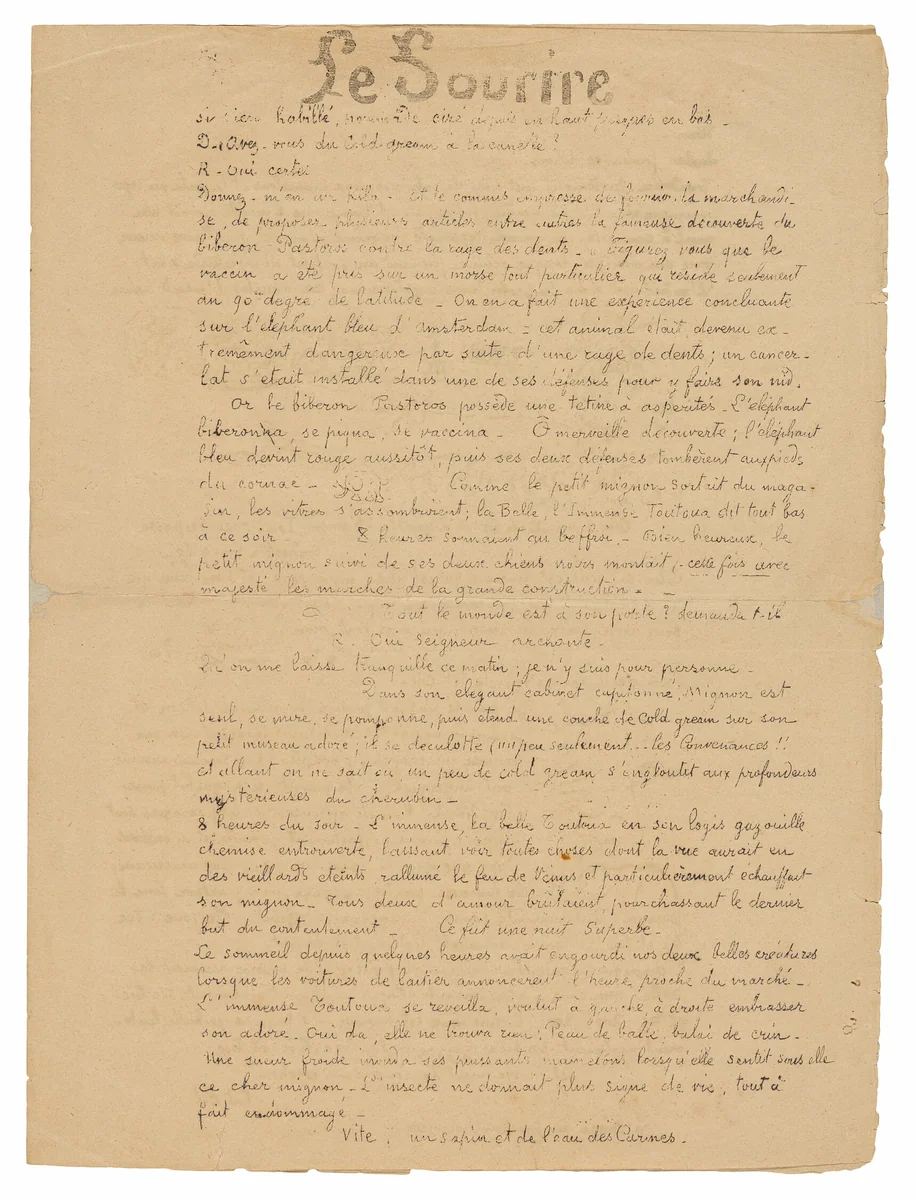 Le Sourire
si bien habillé, pommade ciré depuis en haut jusques en bas -
D- Avez-vous du Cold gream à la canelle?
R - Oui certes
Donnez-m'en un kilo - Et le commis empressé de fournir la marchandi-
se, de proposer plusieurs articles entre autres la fameuse découverte du
biberon Pastoros contre la rage des dents - Figurez vous que le
vaccin a été pris sur un morse tout particulier qui réside seulement
au 90me degré de latitude - On en a fait une expérience concluante
sur l'éléphant bleu d'Amsterdam = cet animal était devenu ex-
trêmement dangereux par suite d'une rage de dents; un cancer-
lat s'était installé dans une de ses défenses pour y faire son nid.
Or le biberon Pastoros possède une tétine à aspérités - L'éléphant
biberonna, se piqua, se vaccina - O merveille découverte; l'éléphant
bleu devint rouge aussitôt, puis ses deux défenses tombèrent aux pieds
du cornac - Comme le petit mignon sortait du maga-
sin, les vitres s'assombrirent; la Belle, l'Immense Toutoua dit tout bas
à ce soir 8 heures sonnaient au beffroi - Bien heureux, le
petit mignon suivi de ses deux chiens noirs montait, - cette fois avec
majesté, les marches de la grande construction -
Tout le monde est à son poste? demanda t-il
R. Oui Seigneur archonte -
Qu'on me laisse tranquille ce matin; je n'y suis pour personne -
Dans son élégant cabinet capitonné, Mignon est
seul, se mire, se pomponne, puis étend une couche de Cold gream sur son
petit museau adoré; il se déculotte (un peu seulement... les Convenances!!
et allant on ne sait où, un peu de cold gream s'engloutit aux profondeurs
mystèrieuses du chérubin -
8 heures du soir - L'immense, la belle Toutoua en son logis gazouille
chemise entrouverte, laissant voir toutes choses dont la vue aurait en
des vieillards éteints rallumé le feu de Vénus et particulièrement échauffait
son mignon - Tous deux d'amour brûlaient, pourchassant le dernier
but du contentement - Ce fut une nuit Superbe -
Le sommeil depuis quelques heures avait engourdi nos deux belles créatures
lorsque les voitures de laitier annoncèrent l'heure proche du marché -
L'immense Toutoua se réveilla, voulut à gauche, à droite embrasser
son adoré. Oui da, elle ne trouva rien; Peau de balle, balai de crin -
Une sueur froide inonda ses puissants mamelons lorsqu'elle sentit sous elle
ce cher mignon - L'insecte ne donnait plus signe de vie, tout à
fait endommagé -
Vite, un sapin et de l'eau des Carmes -